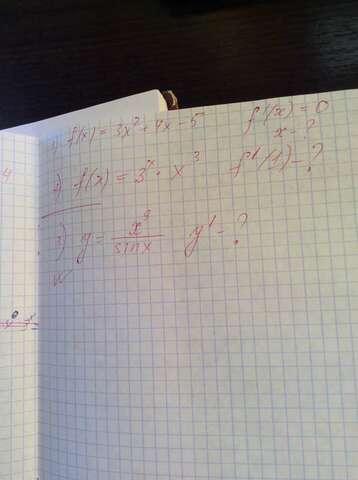 1) f(x) = 3x² + 4x - 5   f'(x) = 0
x - ?
2) f(x) = 3ˣ · x³   f'(1) - ?
3) y = x⁹/sin x   y' - ?